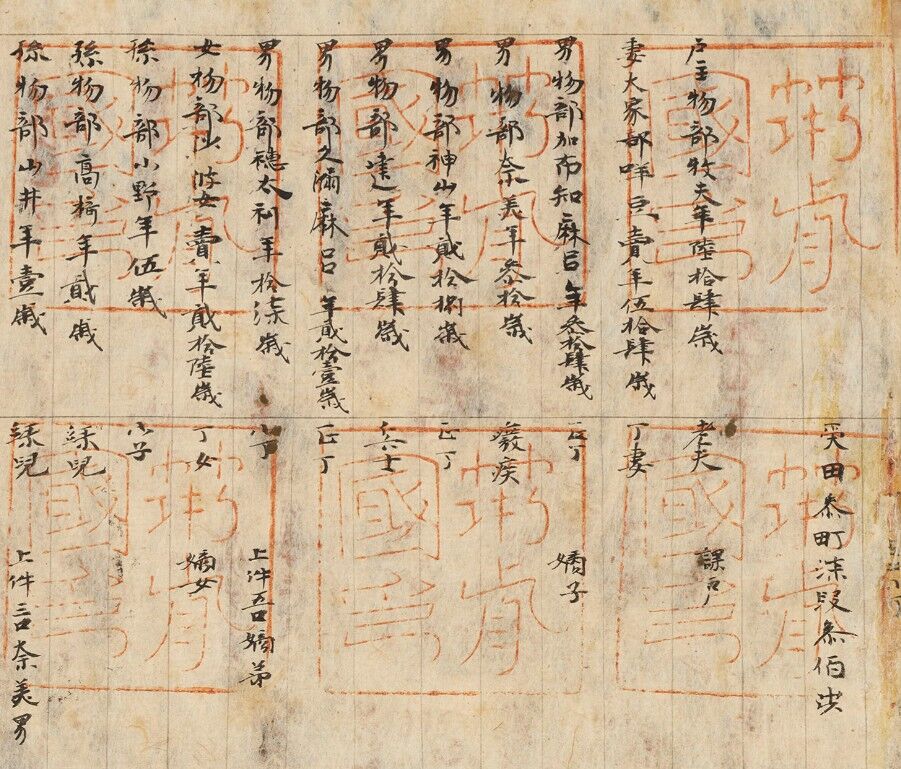 受田叄町漆段叄伯歩
戸主物部牧夫年陸拾肆歳 老夫 課戸
妻大家部咩豆賣年伍拾肆歳 丁妻
男物部加布知麻呂年叄拾肆歳 正丁 嫡子
男物部奈美年叄拾歳 癈疾
男物部神山年貳拾捌歳 正丁
男物部達年貳拾肆歳 兵士
男物部久漏麻呂年貳拾壹歳 正丁
男物部穂太利年拾漆歳 小丁 上件五口嫡弟
女物部 波女賣年貳拾陸歳 丁女 嫡女
孫物部小野年伍歳 小子
孫物部高椅年貳歳 緑兒
孫物部山井年壹歳 緑兒 上件三口奈美男